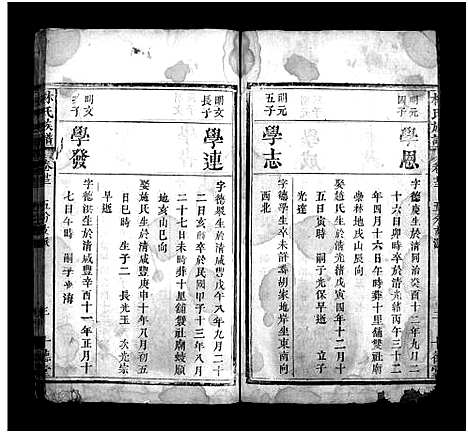 林氏族譜
明元
四子
學恩
字德慶生於清同治癸亥十二年九月二
十六日卯時卒於清光緒丙午三十二
年四月十六日午時葬十里舖雙社廟
藥林地戌山辰向
娶趙氏生於清光緒戊寅四年十二月十
五日寅時 嗣子光保早逝 立子
光達
明元
五子
學志
字德學生卒未詳葬胡家地岸坐東南向
西北
明文
長子
學連
字德巖生於清咸豐戊午八年九月二十
二日亥時卒於民國甲子十三年八月
二十七日未時葬十里舖雙社廟蛟順
地亥山巳向
娶施氏生於清咸豐庚申十年八月初五
日巳時 生子二 長光玉 次光宗
早逝
明文
次子
學發
字德洪生於清咸豐辛酉十一年正月十
七日午時 嗣子少海
林氏族譜